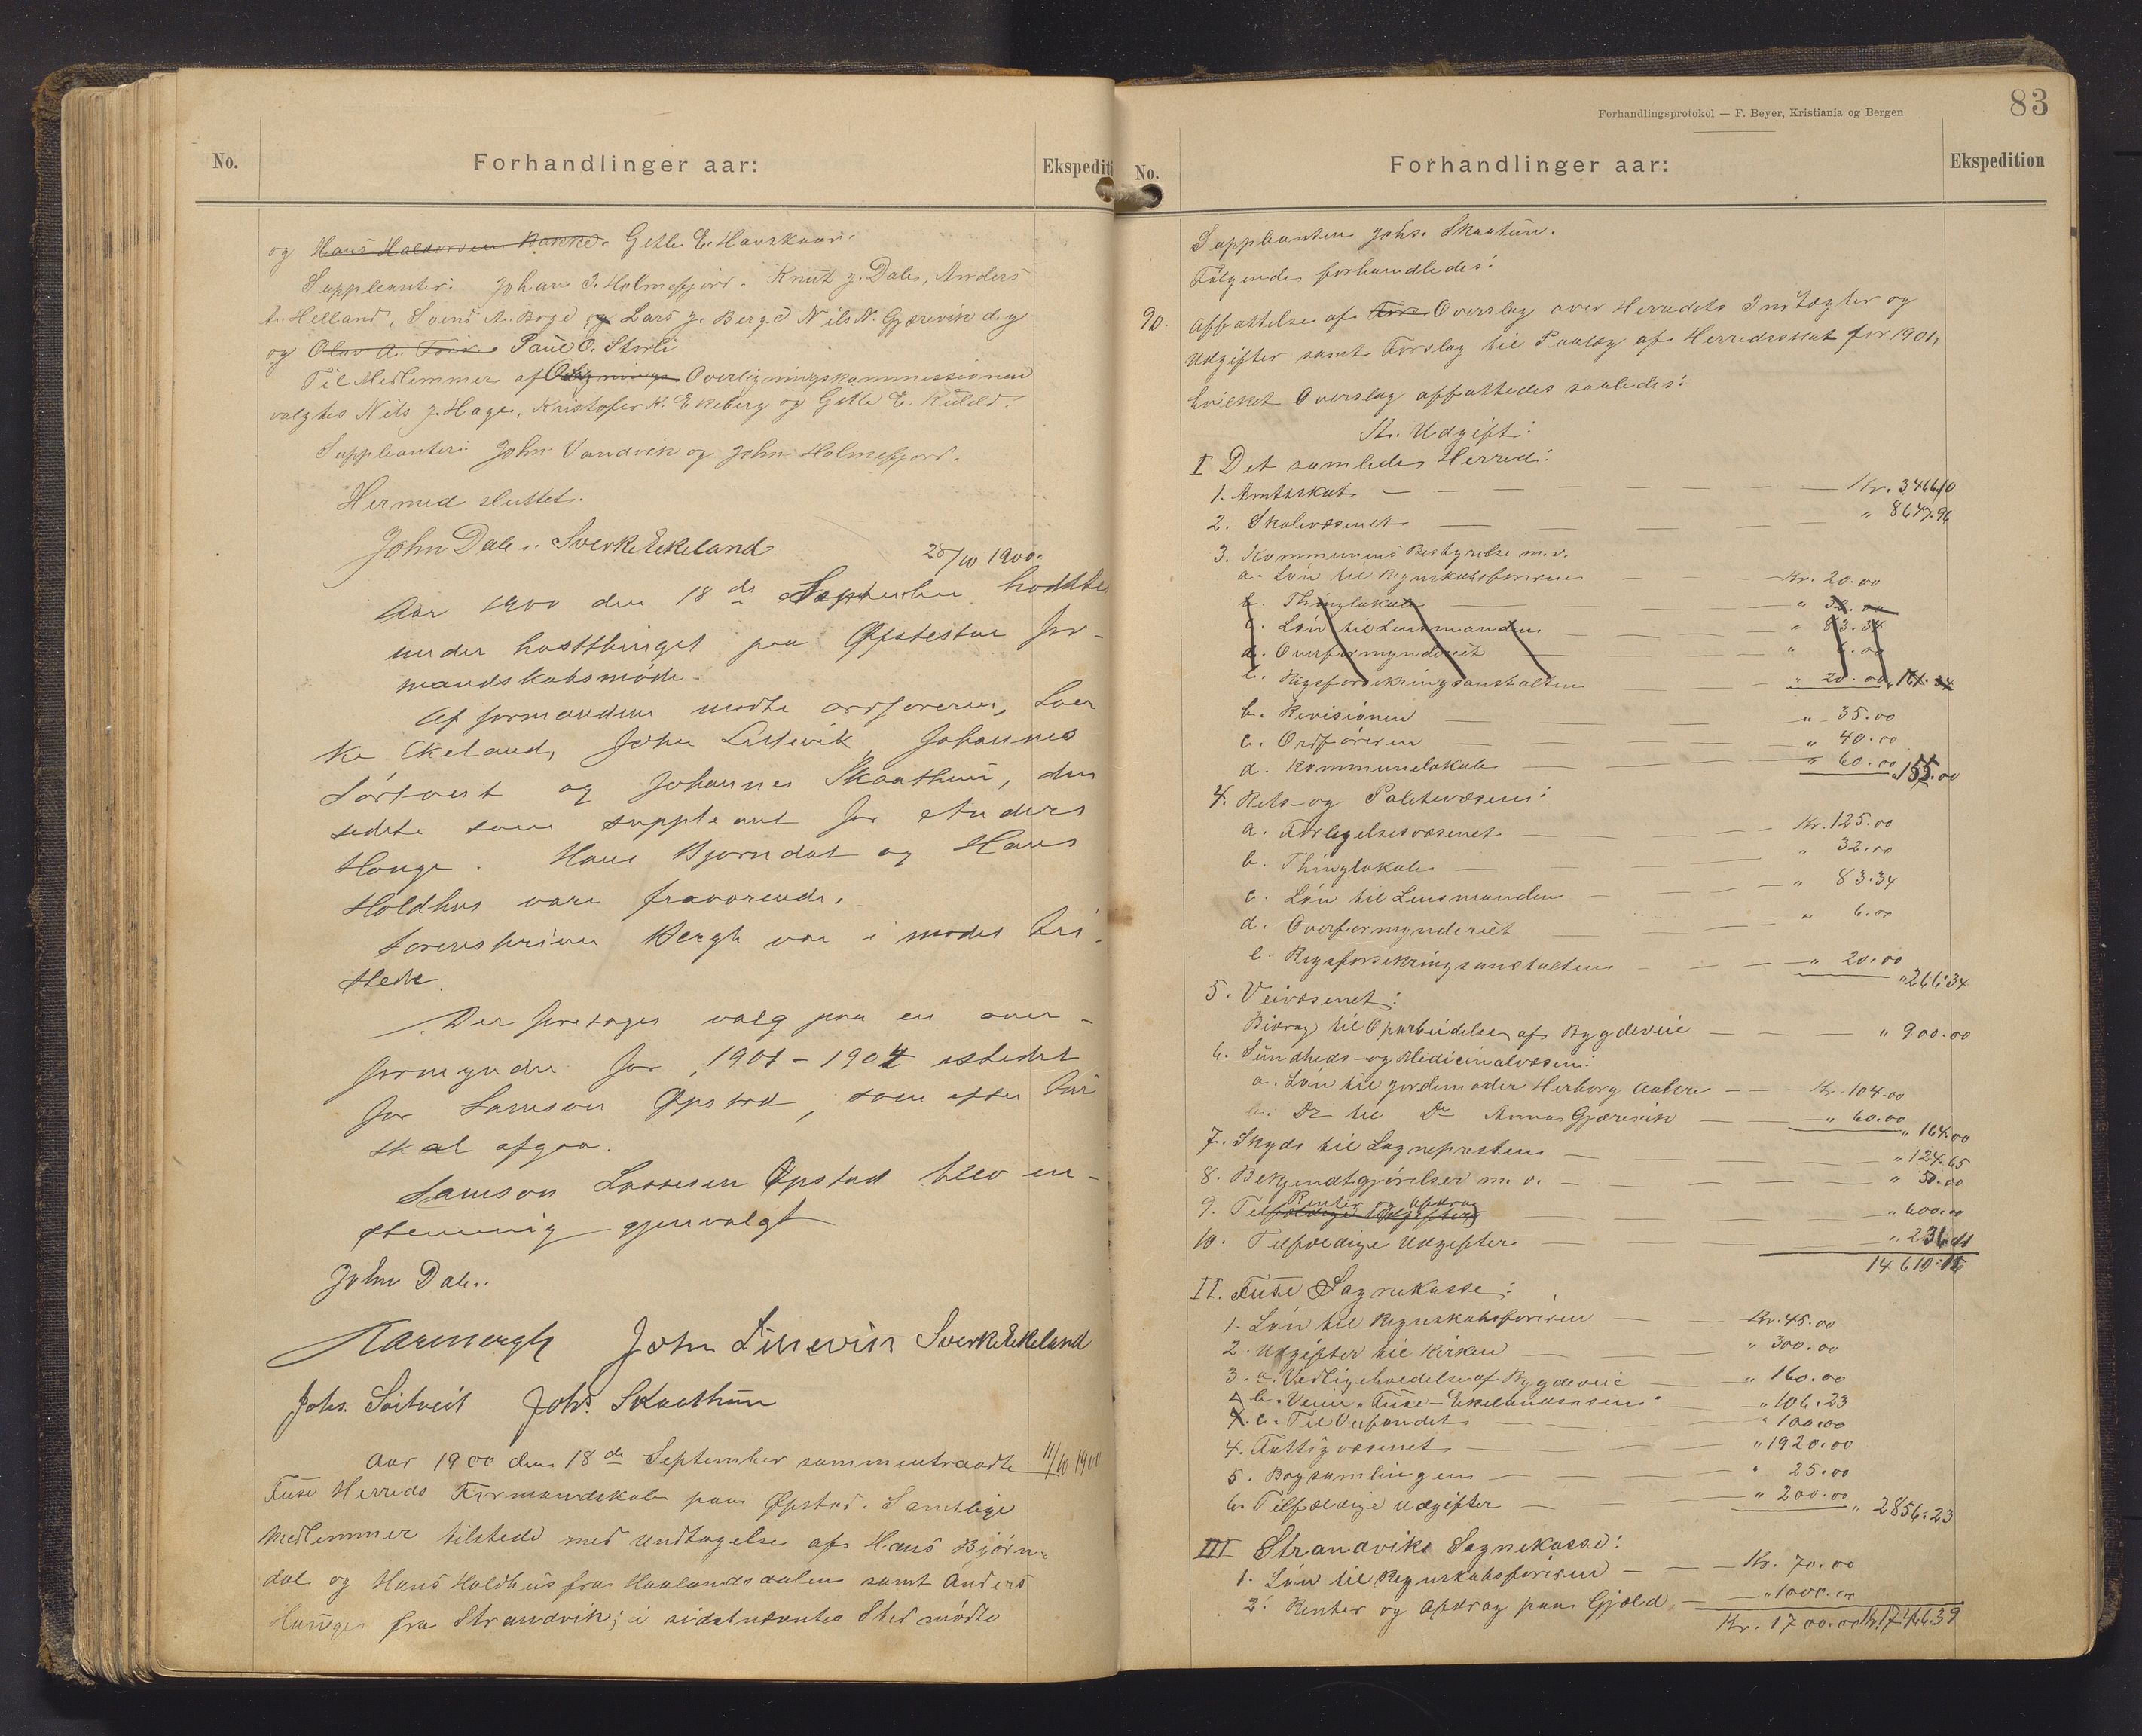 No.
Forhandlinger aar:
Ekspediti
og Hans Haldorsen Bakke. Getle E. Haurskaar.
Suppleanter: Johan J. Holmefjord. Knut J. Dale, Anders
L. Helland, Svend A. Boge, og Lars J. Berge Nils N. Gjærevik d.y
og Olav A. Paul O. Storli
Til Medlemmer af Overligningskommissionen
valgtes Nils J. Hage, Kristofer K. Ekeberg og Getle E. Kileld.
Suppleanter: John Vandvik og John Holmefjord.
Hermed sluttet.
John Dale. Sverke Ekeland
25/10 1900.
Aar 1900 den 18de September holdtes
under hostthinget paa Øpstestue for-
mandskabsmöde.
Af formændene mødte ordføreren, Sver
ke Ekeland, John Litlevik, Johannes
Sørtveit og Johannes Skaathun, den
sidste som suppleant for Anders
Hauge. Hans Bjørndal og Hans
Holdhus vare fraværende.
Sorenskriver Bergh var i mødet tri-
stede.
Der foretages valg paa en over-
formynder for 1901-1904 istedet
for Samson Øpstad, som efter tur
skal afgaa.
Samson Lassesen Øpstad blev en-
stemmig gjenvalgt
John Dale.
John Litlevik Sverke Ekeland
Johs. Sörtveit Johs. Skaathun
Aar 1900 den 18de September sammentraadte
11/10 1900
Fuse Herreds Formandskab paa Øpstad. Samtlige
Medlemmer tilstede med Undtagelse af Hans Bjørn-
dal og Hans Holdhus fra Haalandsdalen samt Anders
Hauge fra Strandvik; i sidstnævntes Sted mødte
Forhandlingsprotokol — F. Beyer, Kristiania og Bergen
83
No.
Forhandlinger aar:
Ekspedition
Suppleanten Johs. Skaatun.
Følgende forhandledes:
90. Affattelse af Overslag over Herredets Indtægter og
Udgifter samt Forslag til Paalæg af Herredsskat for 1901,
hvilket Overslag affattedes saaledes:
A. Udgift:
I Det samlede Herred:
1. Amtsskat — Kr. 3466.10
2. Skolevæsenet — " 8647.96
3. Kommunens Bestyrelse m.v.
a. Løn til Regnskabsføreren — Kr. 20.00
b. Thinglokale — " 32.00
c. Løn til Lensmanden — " 83.34
d. Overformynderiet — " 6.00
e. Rigsforsikringsanstalten — " 20.00 " 161.34
b. Revisionen — " 35.00
c. Ordføreren — " 40.00
d. Kommunelokale — " 60.00 " 155.00
4. Rets- og Politivæsen:
a. Forligelsesvæsenet — Kr. 125.00
b. Thinglokale — " 32.00
c. Løn til Lensmanden — " 83.34
d. Overformynderiet — " 6.00
e. Rigsforsikringsanstalten — " 20.00 " 266.34
5. Veivæsenet:
Bidrag til Oparbeidelse af Bygdeveie — " 900.00
6. Sundheds- og Medicinalvæsen:
a. Løn til Jordemoder Herborg — Kr. 104.00
b. Do til Do Anna Gjærevik — " 60.00 " 164.00
7. Skyds til Sognepresten — " 124.65
8. Bekjendtgjørelser m.v. — " 50.00
9. Tilfældige Udgifter Renter og Afdrag — " 600.00
10. Tilfældige Udgifter — " 236.11
14610.16
II. Fuse Sognekasse:
1. Løn til Regnskabsføreren — Kr. 45.00
2. Udgifter til Kirken — " 300.00
3. a. Vedligeholdelse af Bygdeveie — " 160.00
b. Veien Fuse-Ekelandsosen — " 106.23
c. Til Veifondet — " 100.00
4. Fattigvæsenet — " 1920.00
5. Bogsamlingen — " 25.00
6. Tilfældige Udgifter — " 200.00 " 2856.23
III Strandviks Sognekasse:
1. Løn til Regnskabsføreren — Kr. 70.00
2. Renter og Afdrag paa Gjæld — " 1000.00
Kr. 1700.00 Kr. 17466.39